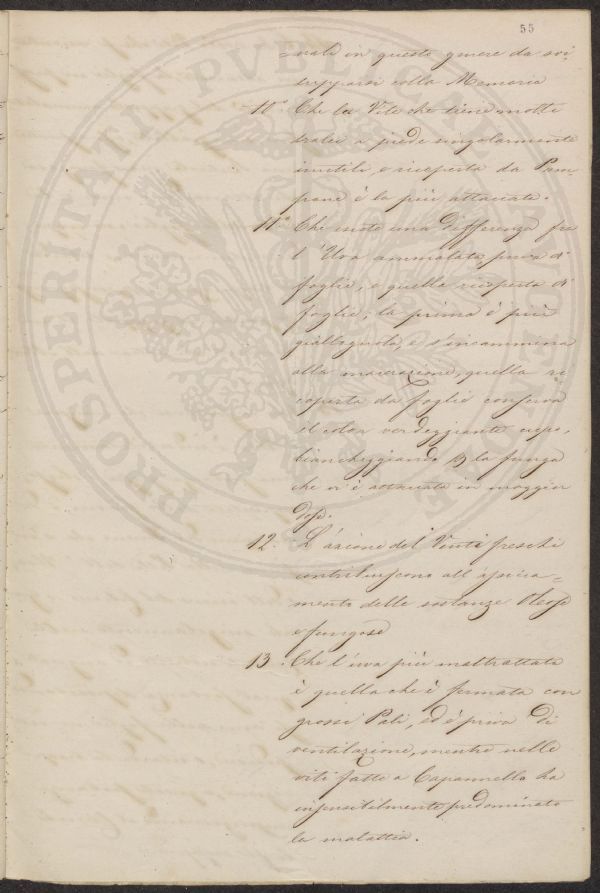 55
PROSPERITATI PVBLICAE AVGENDAE
nali in questo genere da svi,
lupparsi colla Memoria
10.° Che la Vite che tiene molti
tralci a piede singolarmente
inutili, e ricoperta da Pam
pane è la più attaccata.
11.° Che esiste una differenza fra
l'Uva ammalata priva di
foglie, e quella ricoperta di
foglie; la prima è più
giallognola, e s'incammina
alla macerazione, quella ri
coperta da foglie conserva
il color verdeggiante cupo,
biancheggiando la funga
che vi è attaccata in maggior
dose.
12. L'azione dei Venti freschi
contribuiscono all'
mento delle sostanze Oleose
e fungose
13. Che l'uva più maltrattata
è quella che è fermata con
grossi Pali, ed è priva di
ventilazione, mentre nelle
viti fatte a Capannello ha
insensibilmente predominato
la malattia.